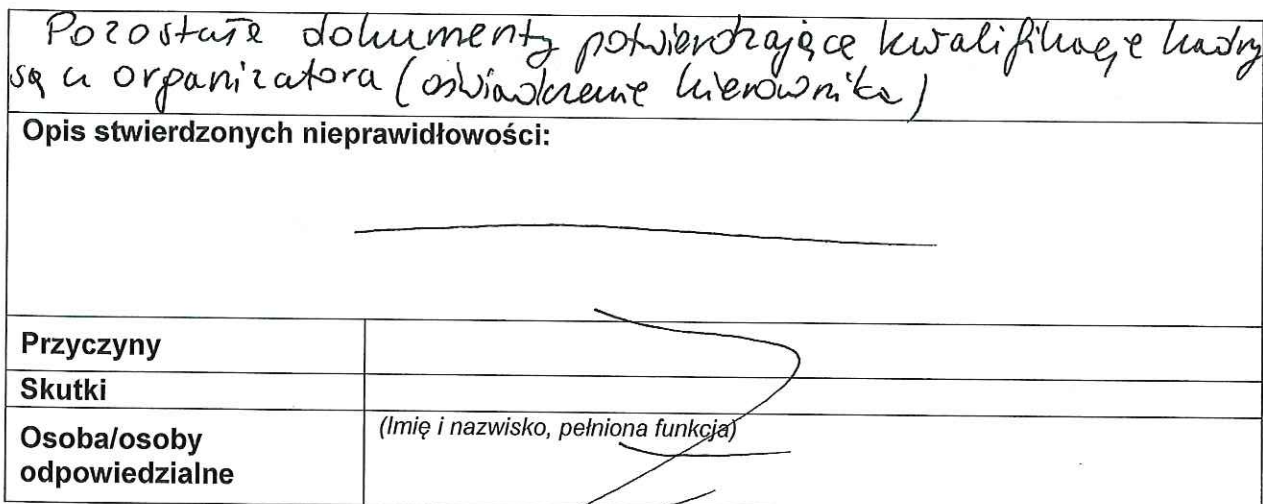 Pozostałe dokumenty potwierdzające kwalifikacje kadry
są u organizatora (oświadczenie kierownika)
Opis stwierdzonych nieprawidłowości:
Przyczyny
Skutki
Osoba/osoby
odpowiedzialne
(Imię i nazwisko, pełniona funkcja)